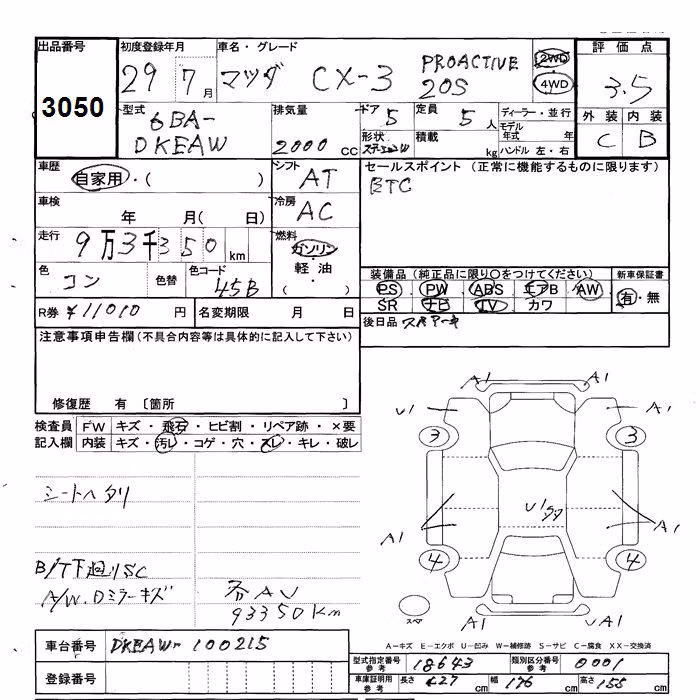 出品番号 初度登録年月 車名・グレード 評価点
3050 29 7月 マツダ CX-3 PROACTIVE 20S 2WD 4WD 3.5
外装 内装
C B
型式 排気量 ドア 定員 ディーラー・並行
6BA-DKEAW 2000 cc 5 5人 モデル年式 年
形状 積載 kg ハンドル 左・右
車歴 自家用・( ) シフト AT セールスポイント (正常に機能するものに限ります)
BTC
車検 年 月( 日) 冷房 AC
走行 9万3千350 km 燃料 ガソリン 軽油 ( )
色 コン 色替 色コード 45B
装備品 (純正品に限り○をつけてください) 新車保証書
PS PW ABS エアB AW 有・無
SR ナビ TV カワ
R券 ¥11010 円 名変期限 月 日
後日品
注意事項申告欄(不具合内容等は具体的に記入して下さい)
修復歴 有 〔箇所 〕
検査員記入欄 FW キズ・飛石・ヒビ割・リペア跡・×要
内装 キズ・汚レ・コゲ・穴・スレ・キレ・破レ
シートヘタリ
B/T下廻りSC
A/W.Dミラーキズ
各AU
93350Km
A1 A1
U1 A1
3 3
U1
A1 A1
4 4
スペア
A1 UA1
A-キズ E-エクボ U-凹み W-補修跡 S-サビ C-腐食 XX-交換済
車台番号 DKEAW-100215
登録番号
型式指定番号参考 18643 類別区分番号参考 0001
車庫証明用参考 長さ 427 cm 幅 176 cm 高さ 155 cm